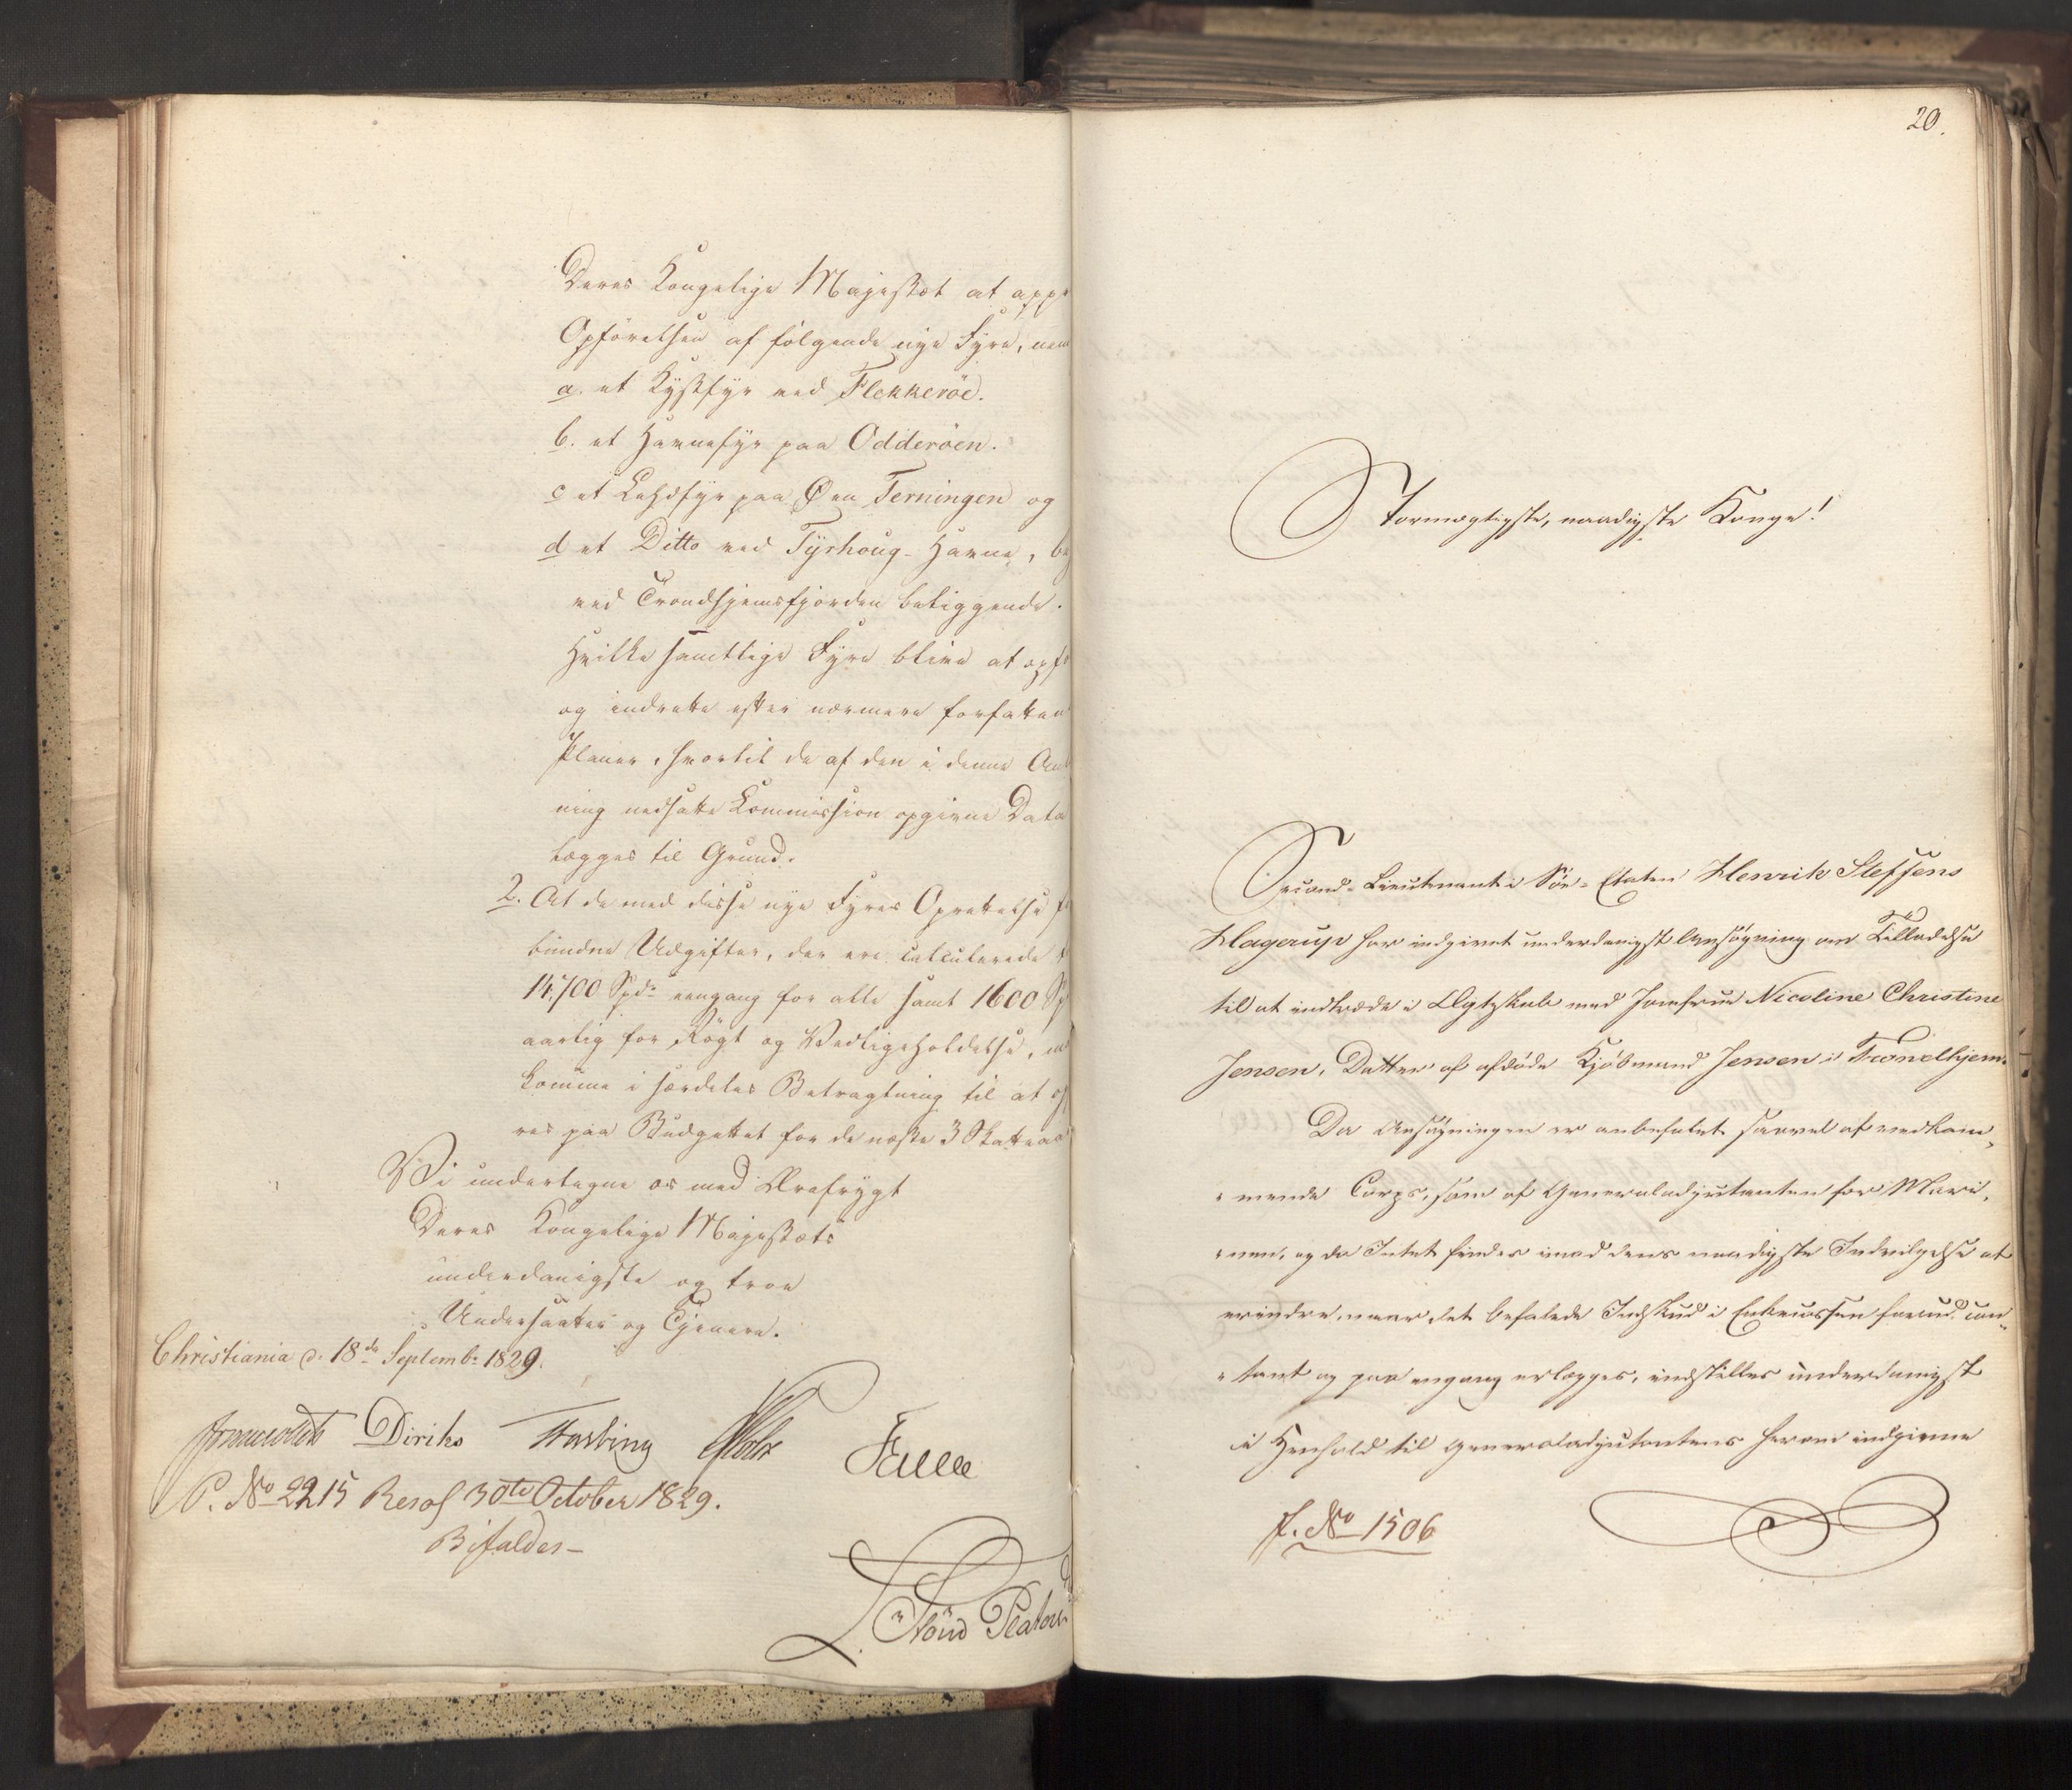 Deres Kongelige Majestæt at app
Opførelsen af følgende nye Fyre, nem
a. et Kystfyr ved Flekkeröe.
b. et Havnefyr paa Odderöen.
c et Lehdfyr paa Øen Terningen og
d et Ditto ved Tyrhoug-Havne, b
ved Trondhjemsfjorden beliggende.
Hvilke samtlige Fyre blive at opf
og indrette efter nærmere forfatten
Planer, hvortil de af den i denne An
ning nedsatte Commission opgivne Data
lægges til Grund.
2. At de med disse nye Fyres Oprettelse f
bundne Udgifter, der ere calculerede t
14,700 Spd. eengang for alle samt 1600 Sp
aarlig for Røgt og Vedligeholdelse, m
komme i særdeles Betragtning til at op
res paa Budgettet for de næste 3 Skatteaa
Vi undertegne os med Ærefrygt
Deres Kongelige Majestæts
underdanigste og troe
Undersaatter og Tjenere.
Christiania d. 18de Septembr 1829.
Diriks Fasting Holst Falsen
P. No 2215 Resol 30te October 1829.
Bifaldes-
20.
Stormægtigste, naadigste Konge!
Second-Lieutenant i Søe-Etaten Henrik Steffens
Hagerup har indgivet underdanigst Ansøgning om Tilladelse
til at indtræde i Ægteskab med Jomfrue Nicoline Christine
Jensen, Datter af afdøde Kjøbmand Jensen i Trondhjem.
Da Ansøgningen er anbefalet saavel af vedkom„
„mende Corps, som af Generaladjutanten for Mari„
„nen, og da Intet findes imod dens naadigste Indvilgelse at
erindre, naar det befalede Indskud i Enkecassen forud con„
„tant og paa engang erlægges, indstilles underdanigst
i Henhold til Generaladjutantens herom indgivne
f. No 1506